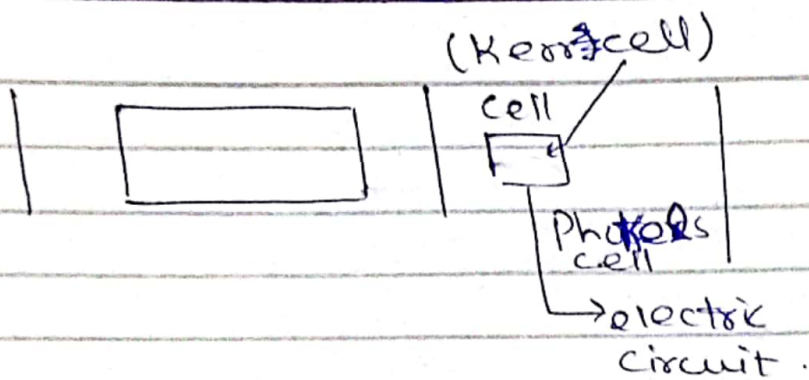 (Kerr cell)
cell
cell
electric
circuit.